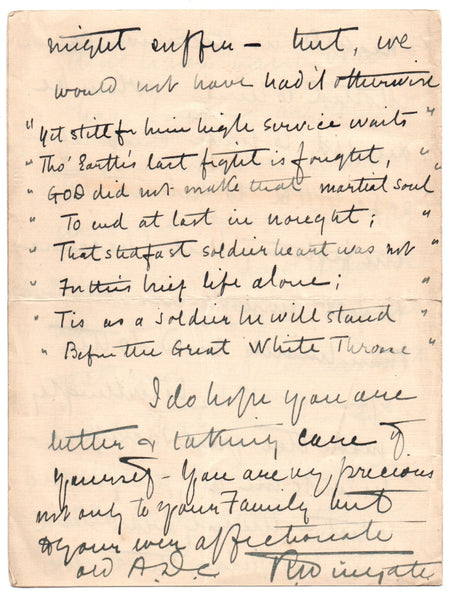 might suffer – but, we
would not have had it otherwise
"Yet still for him high service waits"
"Tho' Earth's last fight is fought, "
"GOD did not make that martial soul"
" To end at last in nought; "
" That stedfast soldier heart was not "
" For this brief life alone; "
" Tis as a Soldier he will stand "
" Before the Great White Throne "
I do hope you are
better & taking care of
yourself – You are very precious
not only to your Family but
to your ever affectionate
old A.D.C R Wingate